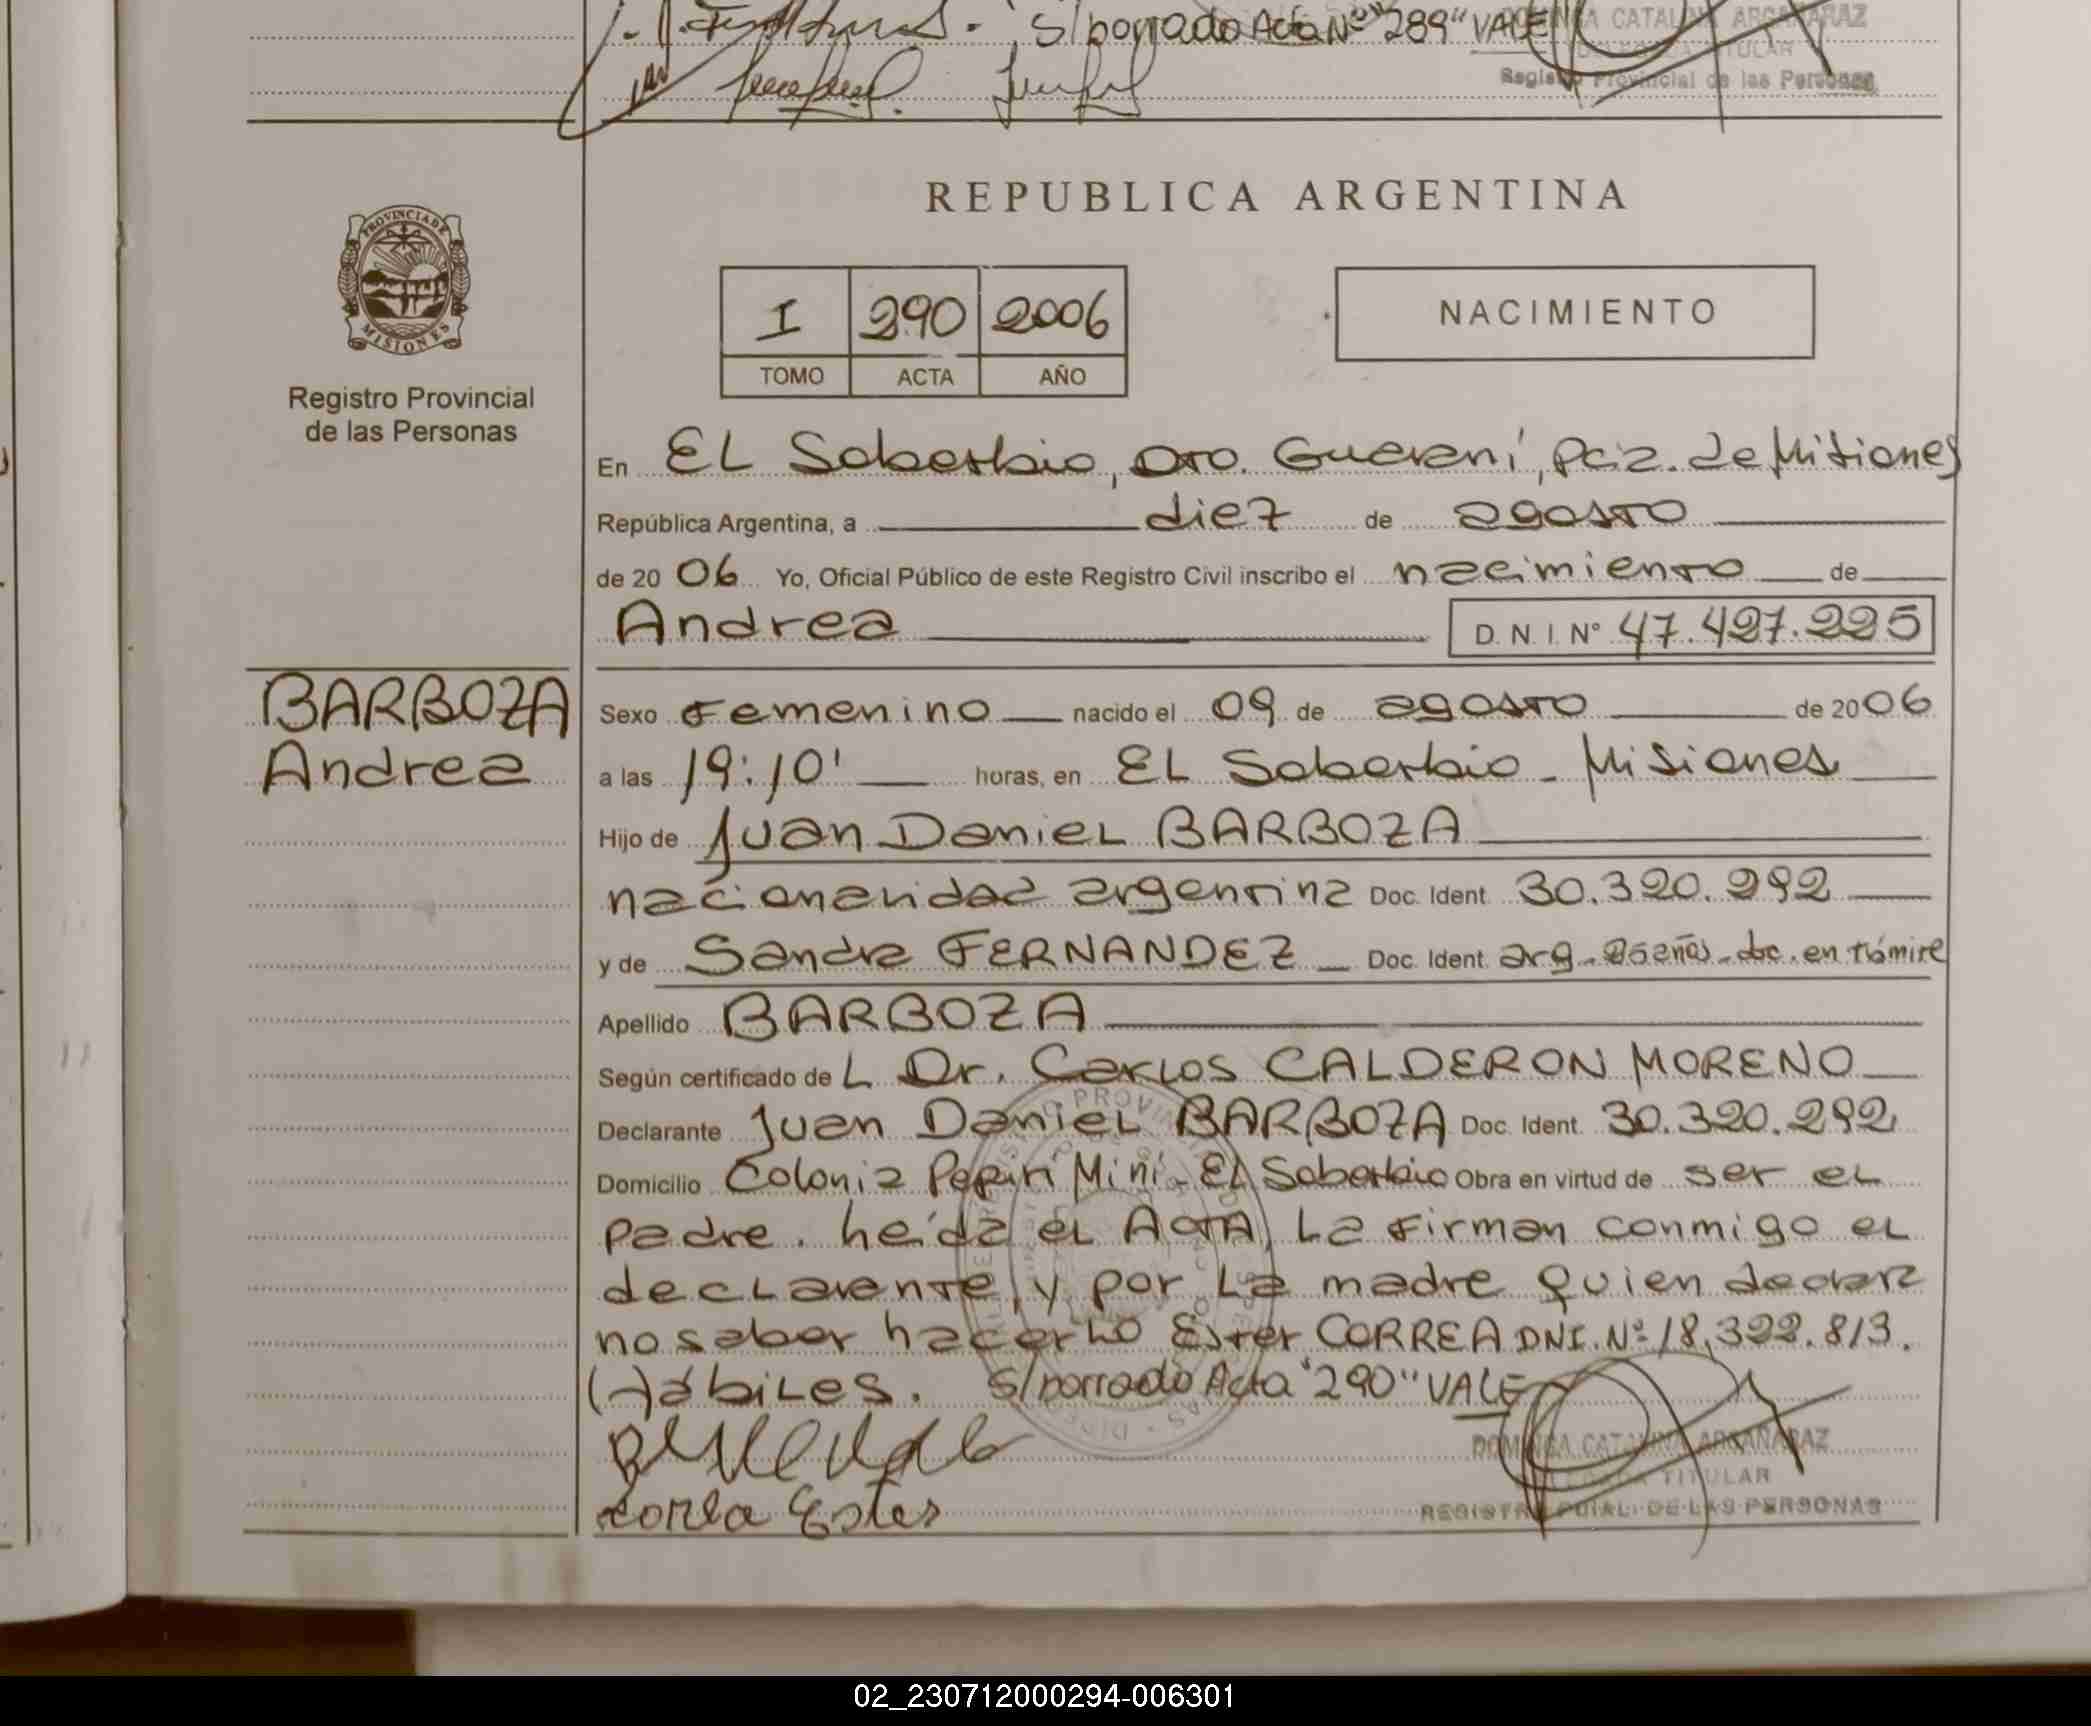 S/borrado Acta Nº "289" VALE
DOMINGA CATALINA ARGAÑARAZ
TITULAR
Registro Provincial de las Personas
REPUBLICA ARGENTINA
PROVINCIA DE MISIONES
Registro Provincial
de las Personas
I 290 2006
TOMO ACTA AÑO
NACIMIENTO
En EL Soberbio, Dto. Guaraní, Pcia. de Misiones
República Argentina, a diez de agosto
de 20 06 Yo, Oficial Público de este Registro Civil inscribo el nacimiento de
Andrea D. N. I. Nº 47.427.225
BARBOZA
Andrea
Sexo Femenino nacido el 09 de agosto de 20 06
a las 19:10' horas, en EL Soberbio - Misiones
Hijo de Juan Daniel BARBOZA
nacionalidad argentina Doc. Ident. 30.320.292
y de Sandra FERNANDEZ Doc. Ident. arg. 25 años - doc. en trámite
Apellido BARBOZA
Según certificado de L Dr. Carlos CALDERON MORENO
Declarante Juan Daniel BARBOZA Doc. Ident. 30.320.292
Domicilio Colonia Pepiri Miní - EL Soberbio Obra en virtud de ser el
padre. Leída el Acta, La firman conmigo el
declarante, y por La madre quien declara
no saber hacerlo Ester CORREA DNI. Nº 18.322.813.
(H)ábiles. S/borrado Acta "290" VALE
DOMINGA CATALINA ARGAÑARAZ
DELEGADA TITULAR
REGISTRO PCIAL. DE LAS PERSONAS
Ester
02_230712000294-006301